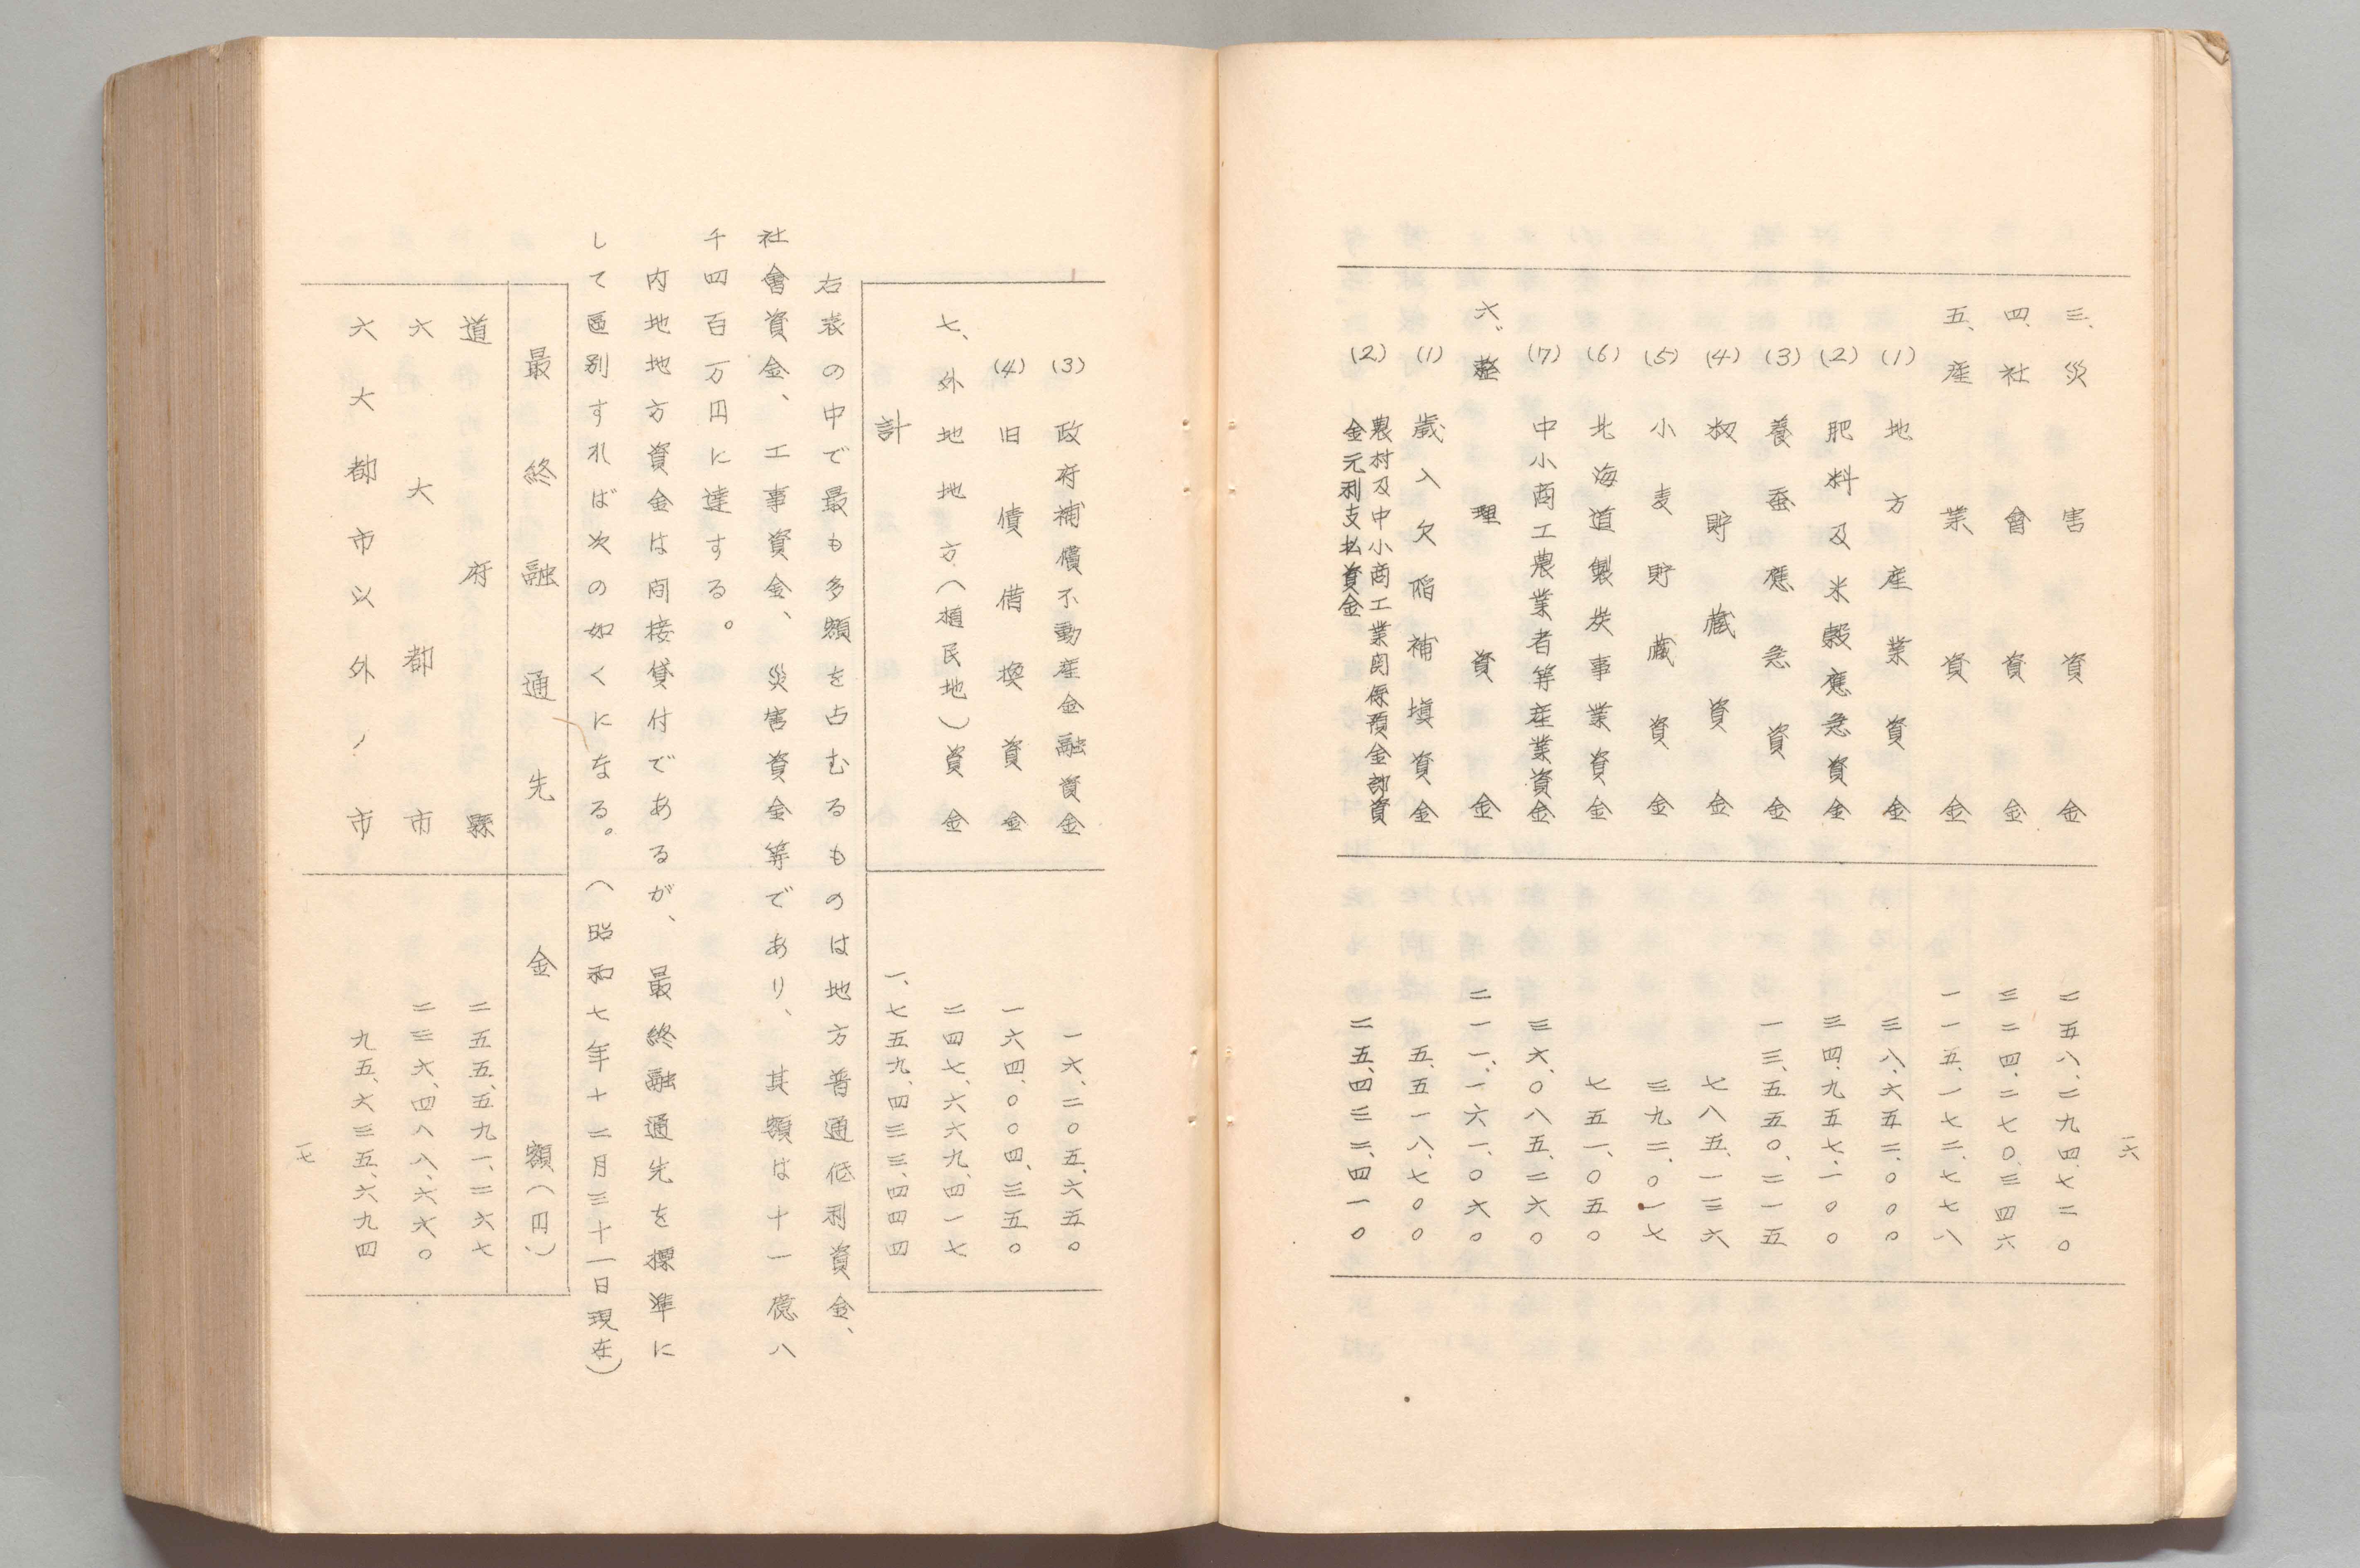 一六
三、災害資金 二五八、二九四、七二〇
四、社會資金 三二四、二七〇、三四六
五、産業資金 一一五、一七二、七七八
(1) 地方産業資金 三八、六五二、〇〇〇
(2) 肥料及米穀應急資金 三四、九五七、一〇〇
(3) 養蚕應急資金 一三、五五〇、二一五
(4) 籾貯藏資金 七八五、一三六
(5) 小麦貯藏資金 三九二、〇一七
(6) 北海道製炭事業資金 七五一、〇五〇
(7) 中小商工農業者等産業資金 三六、〇八五、二六〇
六、整理資金 二一一、一六一、〇六〇
(1) 歳入欠陥補塡資金 五、五一八、七〇〇
(2) 農村及中小商工業関係預金部資
金元利支払資金 二五、四三二、四一〇
(3) 政府補償不動産金融資金 一六、二〇五、六五〇
(4) 旧債借換資金 一六四、〇〇四、三五〇
七、外地地方（植民地）資金 二四七、六六九、四一七
計 一、七五九、四三三、四四四
右表の中で最も多額を占むるものは地方普通低利資金、
社會資金、工事資金、災害資金等であり、其額は十一億八
千四百万円に達する。
内地地方資金は間接貸付であるが、最終融通先を標準に
して區別すれば次の如くになる。（昭和七年十二月三十一日現在）
最終融通先 金額（円）
道府縣 二五五、五九一、二六七
六大都市 二三六、四八八、六六〇
六大都市以外ノ市 九五、六三五、六九四
一七